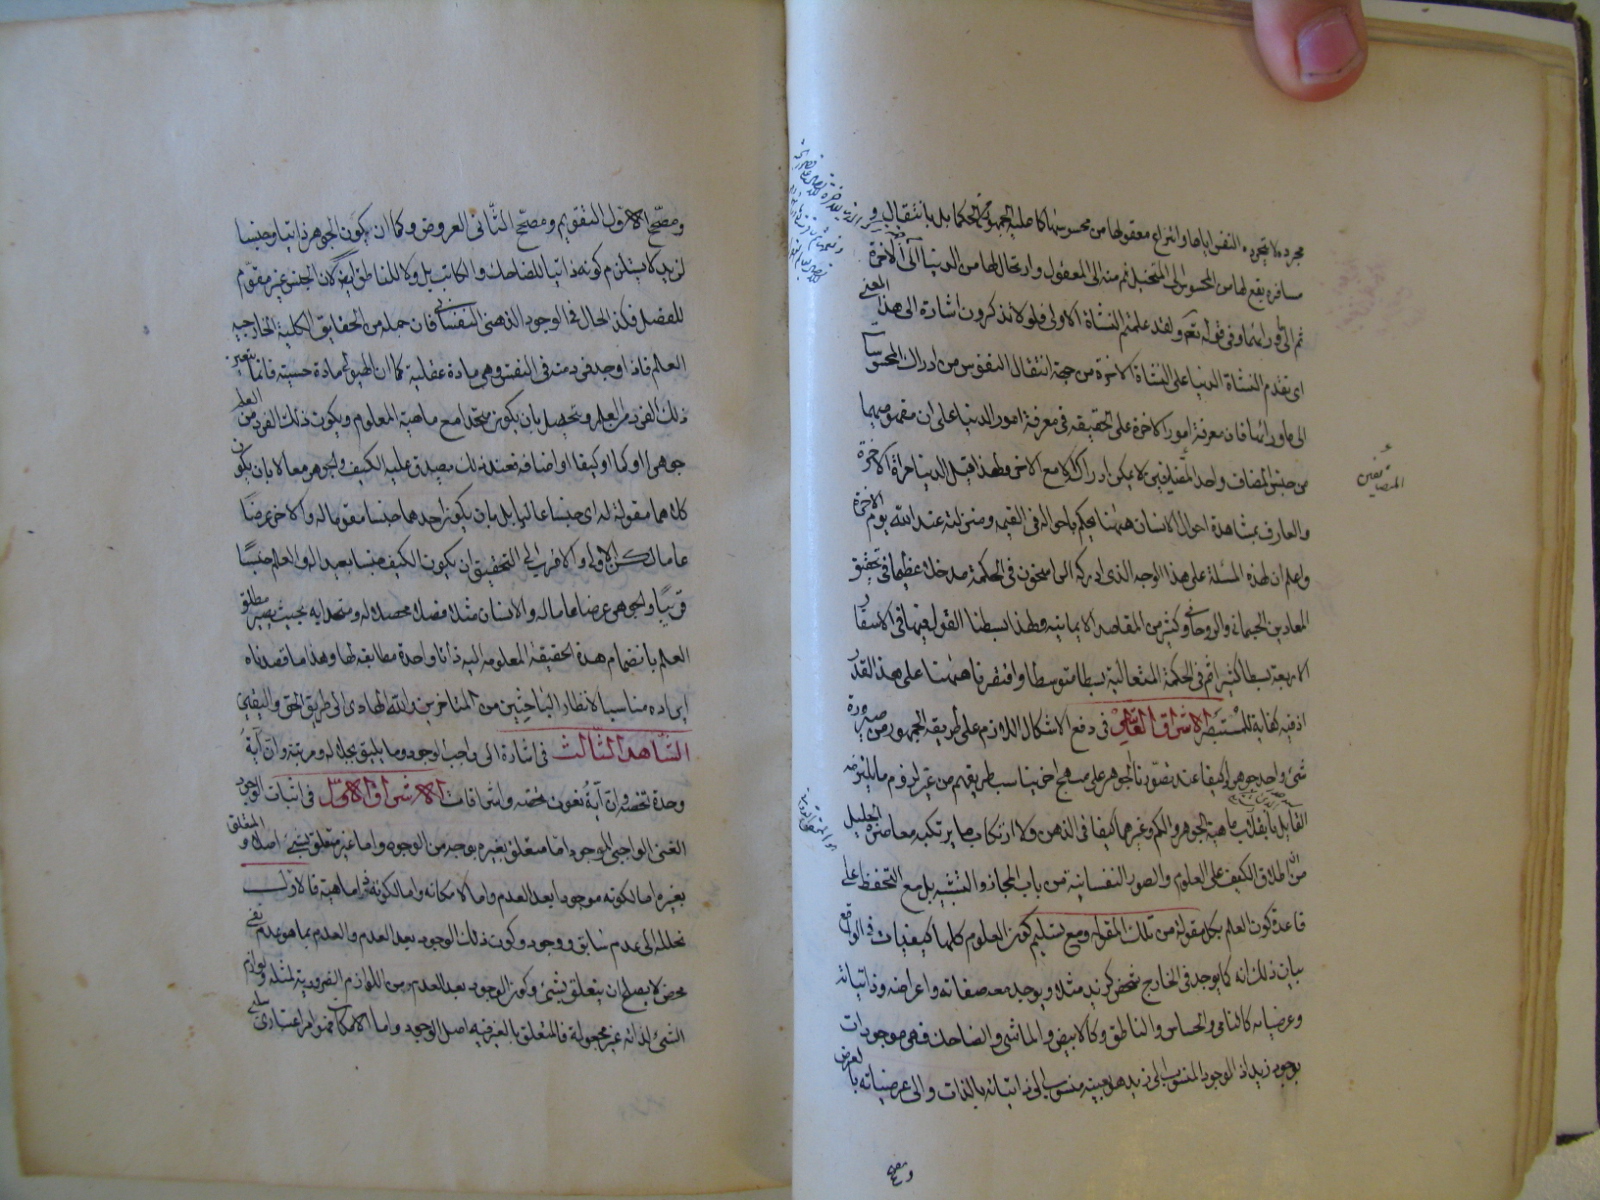 مجرده لا بتجريد النفس اياها وانتزاع معقولها من محسوسها كما عليه جمهور الحكما بل بانتقال و
مسافرة يقع لها من المحسوس الى المتخيل ثم منه الى المعقول وارتحال لها من الدنيا الى الآخرة
ثم الى ماورائهما وفي قوله تعالى ولقد علمتم النشأة الاولى فلولا تذكرون اشارة الى هذا المعنى
اى تقدم النشاة الدنيا على النشاة الاخرة من جهة انتقال النفوس من ادراك المحسوسات
الى ماورائها فان معرفة امور الاخرة على الحقيقه في معرفة امور الدنيا على ان مفهوميهما
من جنس المضاف واحد المتضايفين لا يمكن ادراكه الا مع الاخر ولهذا قيل الدنيا مرآة الاخرة
المتضايفين
والعارف بمشاهدة احوال الانسان ههنا يحكم باحواله في القيمه ومنزلته عند الله يوم الاخرة
واعلم ان لهذه المسئلة على هذا الوجه الذى ادركه الراسخون في الحكمة مدخلا عظيما في تحقيق
المعادين الجسمانى والروحانى وكثير من المقاصد الايمانيه ولهذا بسطنا القول فيها في الاسفار
الاربعة بسطا كثيرا ثم في الحكمة المتعالية بسطا متوسطا واقتصرنا ههنا على هذا القدر
اذ فيه كفاية للمستبصر الاشراق العاشر في دفع الاشكال اللازم على طريقه الجمهور من صيرورة
شئ واحد جوهرا وكيفا عند تصورنا الجوهر على منهج اخر يناسب طريقهم من غير لزوم ما يلتزمه
القائل بانقلاب ماهية الجوهر والكم وغيرهما كيفا في الذهن ولا ارتكاب ما يرتكبه معاصره الجليل
من اطلاق الكيف على العلوم والصور النفسانية من باب المجاز والتشبيه بل مع التحفظ على
قاعدة كون العلم بكل مقولة من تلك المقوله ومع تسليم كون العلوم كلها كيفيات في الواقع
بيان ذلك انه كما يوجد في الخارج شخص كزيد مثلا ويوجد معه صفاته واعراضه وذاتياته
وعرضياته كالنامى والحساس والناطق وكالابيض والماشى والضاحك فهى موجودات
بوجود زيد اذ الوجود المنسوب الى زيد هو بعينه منسوب الى ذاتياته بالذات والى عرضياته بالعرض
ومصحح
ومصحح الاول التقويم ومصحح الثانى العروض وكما ان كون الجوهر ذاتيا وجنسا
لزيد لا يستلزم كونه ذاتيا للضاحك والكاتب بل ولا للناطق ايضا لان الجنس غير مقوم
للفصل فكذا الحال في الوجود الذهنى النفسانى فان جمله من الحقايق الكلية الخارجيه
العلم فاذا وجد فرد منه في النفس وهى مادة عقلية كما ان الهيولى مادة حسيته فانما يتعين
ذلك الفرد من العلم وتحصل بان يكون متحدا مع ماهية المعلوم ويكون ذلك الفرد من العلم
جوهرا او كما او كيفا او اضافه فعند ذلك يصدق عليه الكيف والجوهر معا لا بان يكون
كلاهما مقولة له اى جنسا عاليا بل بان يكون احدهما جنسا مقوما له والاخر عرضا
عاما لكن الاولى والاقرب الى التحقيق ان يكون الكيف جنسا بعيدا له والعلم جنسا
قريبا والجوهر عرضا عاما له والانسان مثلا فصلا محصلا له ومتحدا به بحيث يصير مطلق
العلم بانضمام هذه الحقيقة المعلومه اليه ذاتا واحدة مطابقه لها وهذا ما قصدناه
ايراده مناسبا لانظار الباحثين من المتاخرين والله الهادى الى طريق الحق واليقين
الشاهد الثالث في اشارة الى واجب الوجود وما يليق بجلاله ومرتبة وان اية
وحدة تخصه وان اية نعوت تخصه واشراقات الاشراق الاول في اثبات الوجود
الغنى الواجبى الموجود اما متعلق بغيره بوجه من الوجوه واما غير متعلق بشئ اصلا والمتعلق
بغيره اما لكونه موجودا بعد العدم واما لامكانه واما لكونه ذا ماهية فالاول
نحلله الى عدم سابق ووجود وكون ذلك الوجود بعد العدم والعدم بما هو عدم نفى
محض لا يصلح ان يتعلق بشئ وكون الوجود بعد العدم من اللوازم الضرورية لمثله ولوازم
الشئ لذاته غير مجعولة فالمتعلق بالغير فيه اصل الوجود واما الامكان فهو امر اعتبارى سلبى